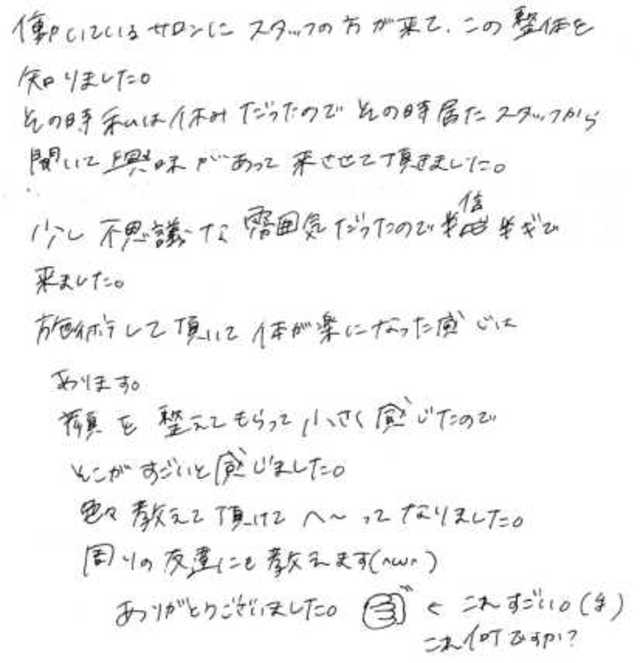 働いているサロンにスタッフの方が来て、この整体を
知りました。
その時私は休みだったのでその時居たスタッフから
聞いて興味があって来させて頂きました。
少し不思議な雰囲気だったので半信半ぎで
来ました。
施術して頂いて体が楽になった感じは
あります。
顔を整えてもらって小さく感じたので
そこがすごいと感じました。
色々教えて頂けてへ〜ってなりました。
周りの友達にも教えます(^w^)
ありがとうございました。 ← これすごい。(笑)
これ何ですか?